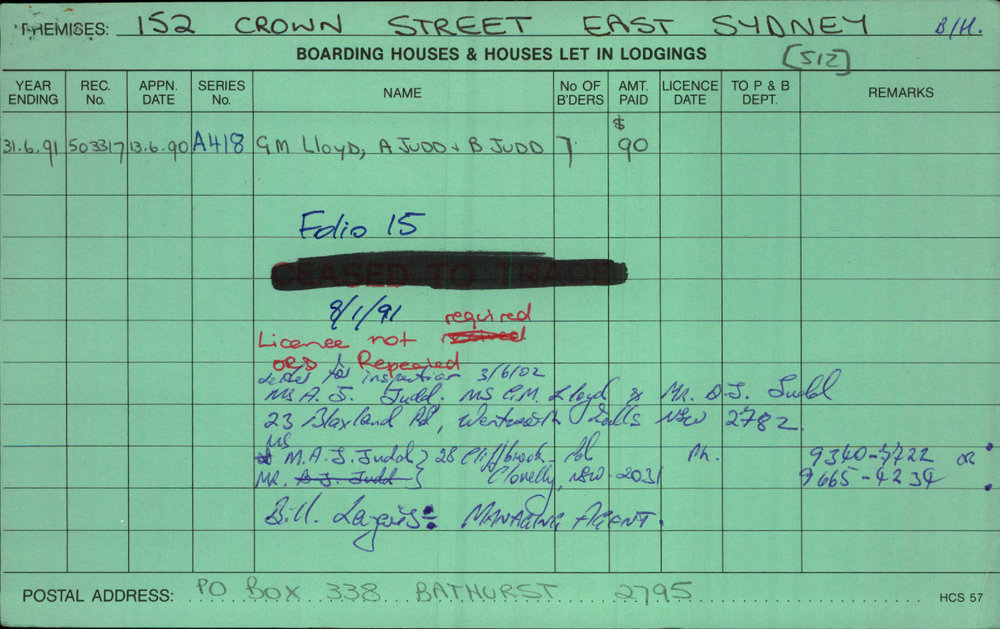 PREMISES: 152 CROWN STREET EAST SYDNEY B/H.
BOARDING HOUSES & HOUSES LET IN LODGINGS [512]
YEAR ENDING REC. No. APPN. DATE SERIES No. NAME No OF B'DERS AMT. PAID LICENCE DATE TO P & B DEPT. REMARKS
31.6.91 503317 13.6.90 A418 GM LLOYD, A JUDD & B JUDD 7 $ 90
Folio 15
CEASED TO TRADE
8/1/91 required
Licence not
ORD Repealed
Letter for inspection 3/6/02
MS A. J. Judd. MS G.M. Lloyd & Mr. B.J. Judd
23 Blaxland Rd, Wentworth Falls NSW 2782
MS
M.A.J. Judd } 28 Cliffbrook Pd Ph. 9340-3722 OR
MR. B.J. Judd } Clovelly, NSW. 2031 9665-4234
Bill Lazaris: MANAGING AGENT.
POSTAL ADDRESS: PO BOX 338 BATHURST 2795
HCS 57